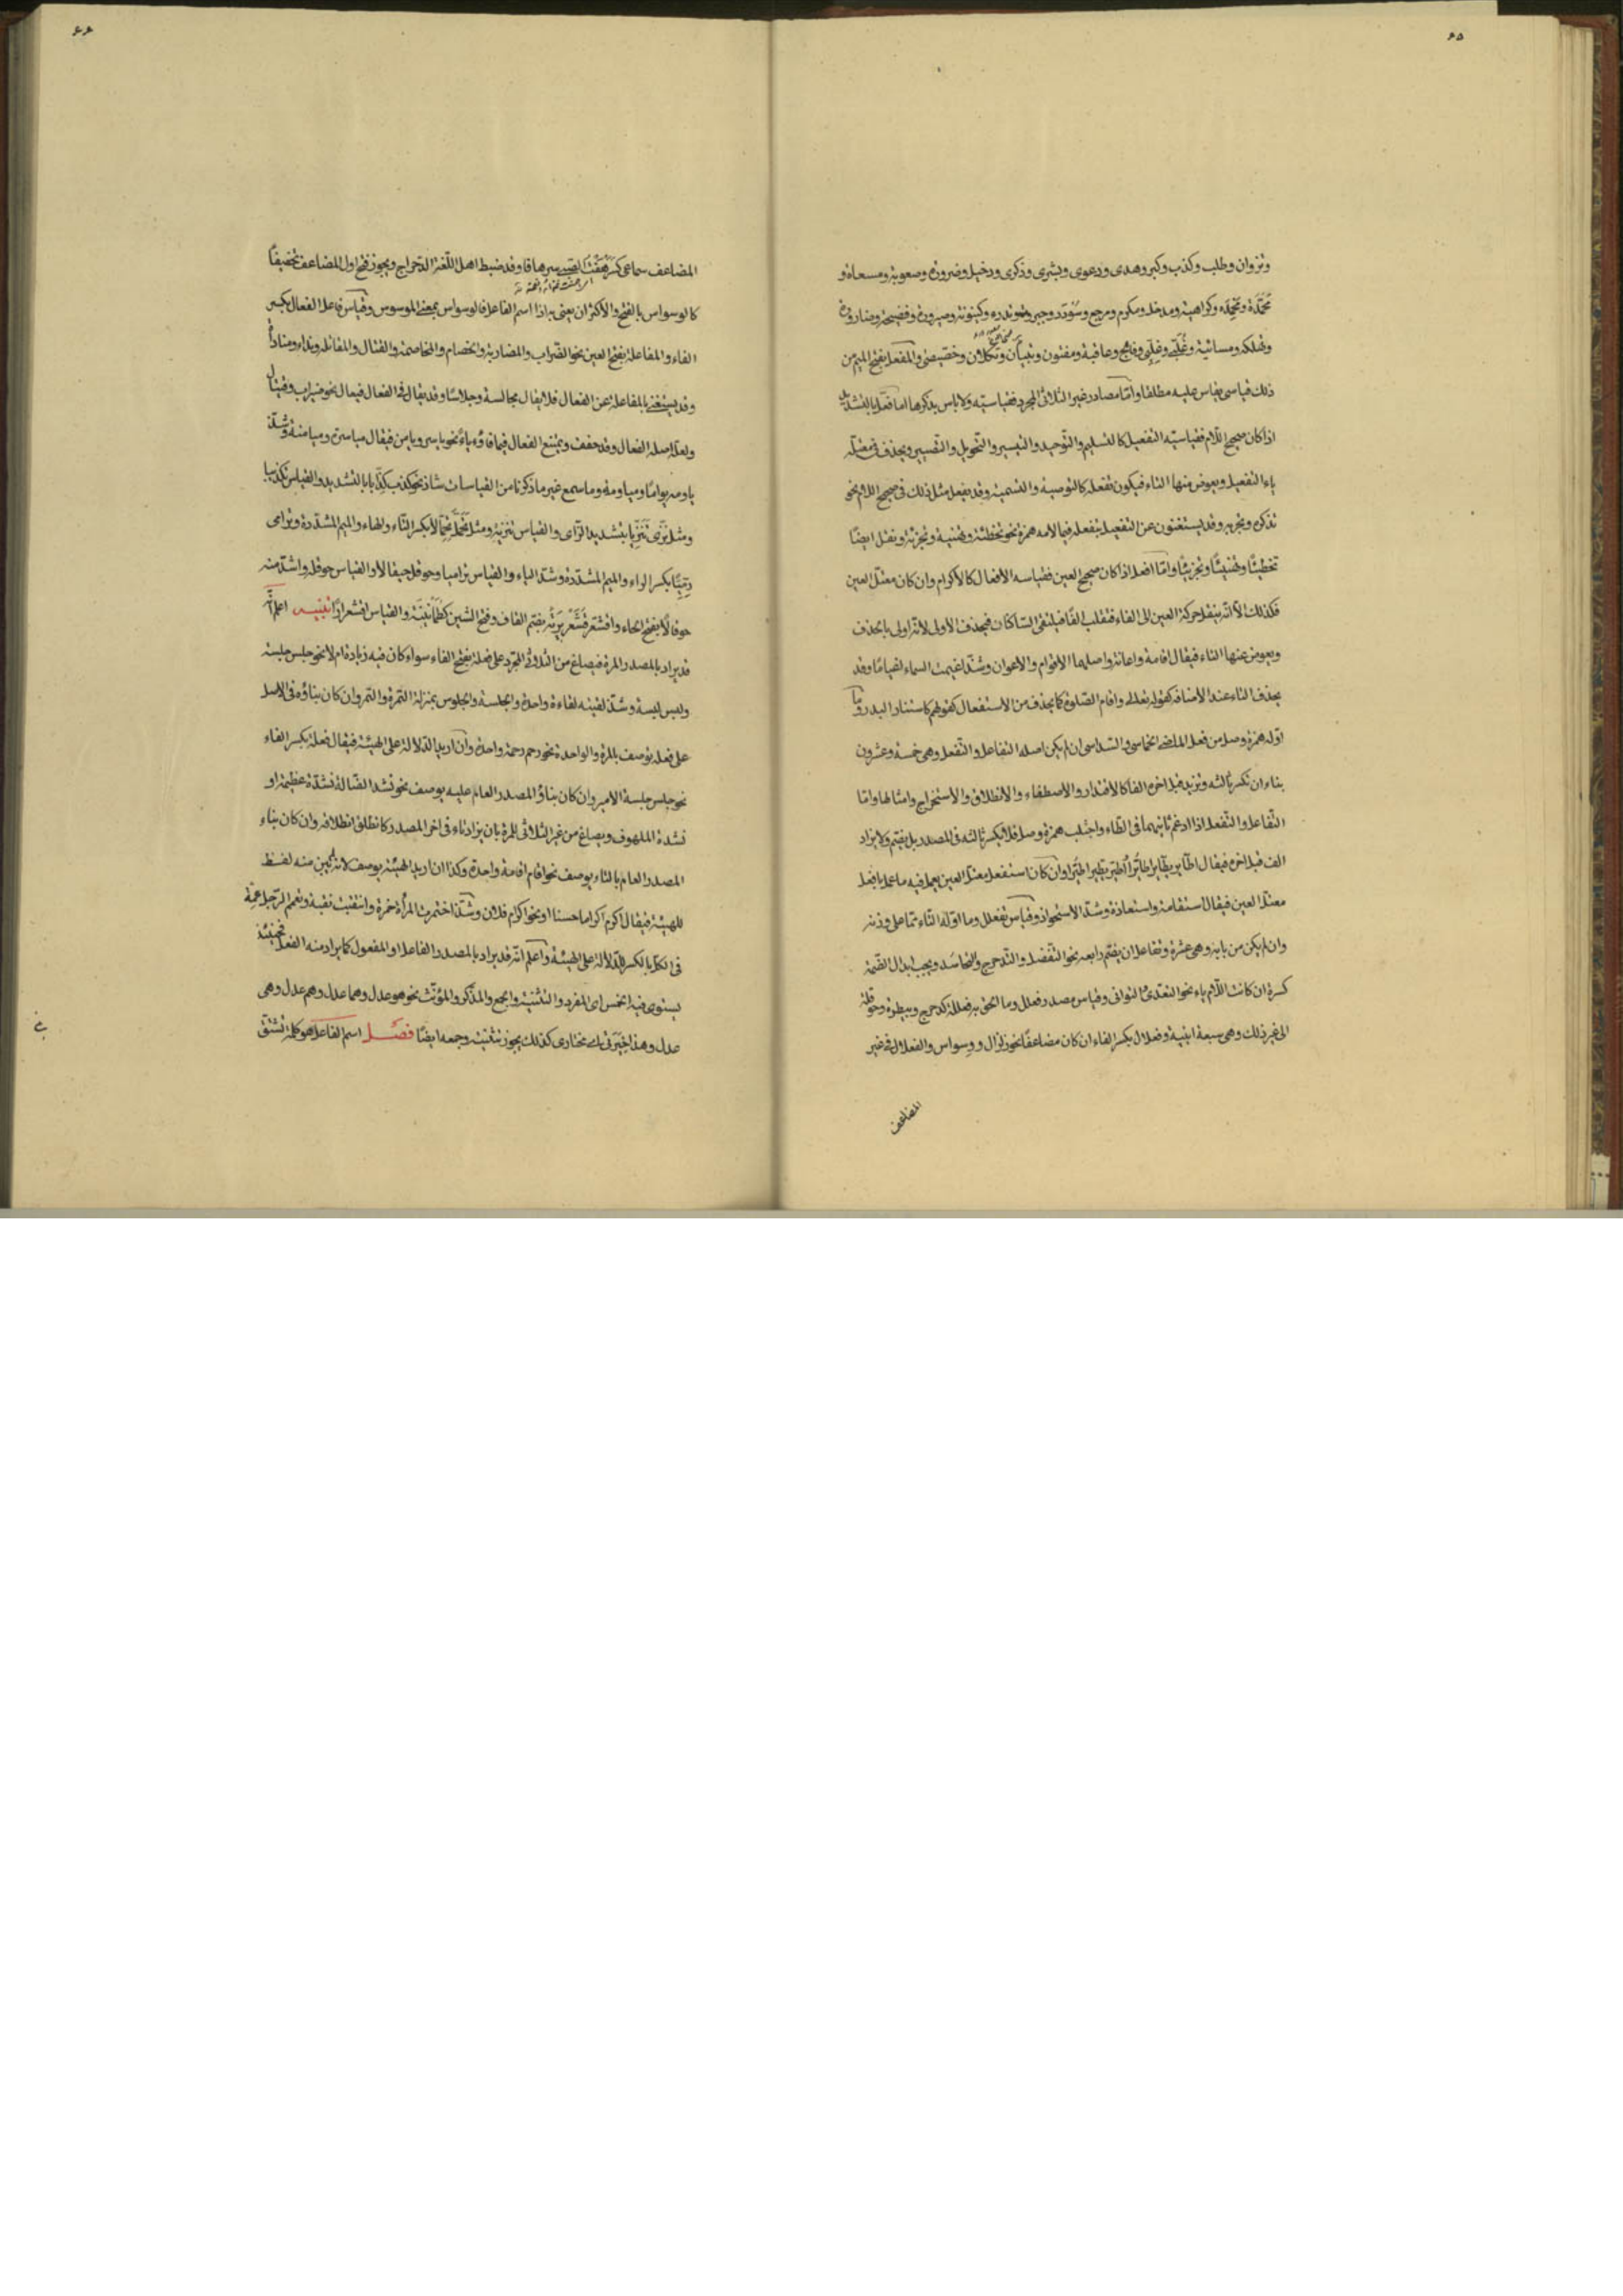 ٦٥
ونزوان وطلب وكذب وكبر وهدى ودعوى وبشرى وذكرى ودخيل وضرورة وصعوبة ومسعاة و
محمدة ومحمده وكراهية ومدخل ومكرم ومرجع وسؤدد وجبروت وكينونة وصيرورة وفضيحة
وتهلكة ومسائية وغلبى وغلبى وفالج وعاقبة ومفتون وتبيان وتكلان وخصيصى والمفعل بفتح الميم من
ذلك قياسى يقاس عليه مطلقا واما مصادر غير الثلاثى المجرد فقياسيه ولا باس بذكرها اما فعل بالتشديد
اذا كان صحيح اللام فقياسه التفعيل كالتسليم والتوحيد والتيسير والتحويل والتسيير ويحذف فى معتله
ياء التفعيل ويعوض منها التاء فيكون تفعله كالتوصية والتسمية وقد يفعل مثل ذلك فى صحيح اللام نحو
تذكرة وتجربه وقد يستغنون عن التفعيل بتفعله فيما لامه همزة نحو تخطئة وتهنئة وتجزئة ونقل ايضًا
تخطيئًا وتهنيئًا وتجزيئًا واما افعل اذا كان صحيح العين فقياسه الافعال كالاكرام وان كان معتل العين
فكذلك الا انه ينقل حركة العين الى الفاء فتقلب الفًا فيلتقى الساكنان فيحذف الاولى لانه اولى بالحذف
ويعوض عنها التاء فيقال اقامة واعانة واصلهما الاقوام والاعوان وشذ اغيمت السماء اغيامًا وقد
يحذف التاء عند الاضافه كقوله تعالى واقام الصلوة كما يحذف من الاستفعال كقولهم كاستنار البدر وما
اوله همزة وصل من فعل الماضى الخماسى والسداسى ان لم يكن اصله التفاعل والتفعل وهى خمسة وعشرون
بناء ان تكسر ثالثه وتزيد قبل اخره الفا كالاقتدار والاصطفاء والانطلاق والاستخراج وامثالها واما
التفاعل والتفعل اذا ادغم تائيهما فى الطاء واجتلب همزة وصل فلا يكسر ثالثه فى المصدر بل يضم ولا يزاد
الف قبل اخره فيقال اطاير يطاير اطايرا اطير يطير اطيرا وان كان استفعل معتل العين يعمل فيه ما عمل بافعل
معتل العين فيقال استقامة واستعاذة وشذ الاستحواذ وقياس تفعلل وما اوله التاء مما على وزنه
وان لم يكن من بابه وهى عشرة وتفاعل ان يضم رابعه نحو التفضل والتدحرج والتحاسد ويجب ابدال الضمة
كسرة ان كانت اللام ياء نحو التعدى والتوانى وقياس مصدر فعلل وما الحق به فعللة كدحرجة وبيطرة وحوقلة
الى غير ذلك وهى سبعة ابنية وفعلال بكسر الفاء ان كان مضاعفًا نحو زلزال ووسواس والفعلال فى غير
المضاعف
٦٦
المضاعف سماعى كسرهفت الصبى سرهافا وقد ضبط اهل اللغة الدحراج ويجوز فتح اول المضاعف تخفيفًا
كالوسواس بالفتح والاكثر ان يعنى به اذا اسم الفاعل فالوسواس بمعنى الموسوس وقياس فاعل الفعال بكسر
الفاء والمفاعلة بفتح العين نحو الضراب والمضاربة والخصام والمخاصمة والقتال والمقاتلة ونداء ومناداة
وقد يستغنى بالمفاعلة عن الفعال فلا يقال مجالسة وجلاسًا وقد يقال فى الفعال فيعال نحو ضيراب وقيتال
ولعله اصله الفعال وقد خفف ويمتنع الفعال فيما فاؤه ياءً نحو ياسر ويامن فيقال مياسرة وميامنة وشذ
ياومه يوامًا ومياومة وما سمع غير ما ذكرنا من القياسات شاذ نحو كذب كذابا بالتشديد والقياس تكذيبا
ومثل نزى تنزيا بتشديد الزاى والقياس تنزية ومثل تجمل تجمالا بكسر التاء والميم المشددة وترامى
رميا بكسر الراء والميم المشددة وشد الياء والقياس تراميا وحوقل حيقالا والقياس حوقلة واشذ منه
حوقالًا بفتح الحاء واقشعر قشعريرة بضم القاف وفتح الشين كطمأنينة والقياس اقشعرارًا تنبيه اعلم انه
قد يراد بالمصدر المرة فيصاغ من الثلاثى المجرد على فعلة بفتح الفاء سواء كان فيه زيادة ام لا نحو جلس جلسة
ولبس لبسة وشذ لقيته لقاءة واحدة والجلسة والجلوس بمنزلة التمرة والتمر وان كان بناؤه فى الاصل
على فعلة يوصف بالمرة والواحدة نحو رحم رحمة واحدة وان اريد الدلالة على الهيئة فيقال فعلة بكسر الفاء
نحو جلس جلسة الامير وان كان بناؤ المصدر العام عليه يوصف نحو نشد الضالة نشدة عظيمة او
نشدة الملهوف ويصاغ من غير الثلاثى للمرة بان يزاد تاء فى اخر المصدر كانطلق انطلاقة وان كان بناء
المصدر العام بالتاء يوصف نحو اقام اقامة واحدة وكذا ان اريد الهيئة يوصف لانه لم يبن منه لفظ
للهيئة فيقال اكرم اكراما حسنا او نحو اكرام فلان وشذ اختمرت المرأة خمرة وانتقبت نقبة وتعمم الرجل عمة
فى الكل بالكسر للدلالة على الهيئة واعلم انه قد يراد بالمصدر الفاعل او المفعول كما يراد منه الفعل فحينئذ
يستوى فيه الخمس اى المفرد والتثنية والجمع والمذكر والمؤنث نحو هو عدل وهما عدل وهم عدل وهى
عدل وهذا خيرتى اى مختارى كذلك يجوز تثنيته وجمعه ايضًا فصل اسم الفاعل هو كلمة اشتق